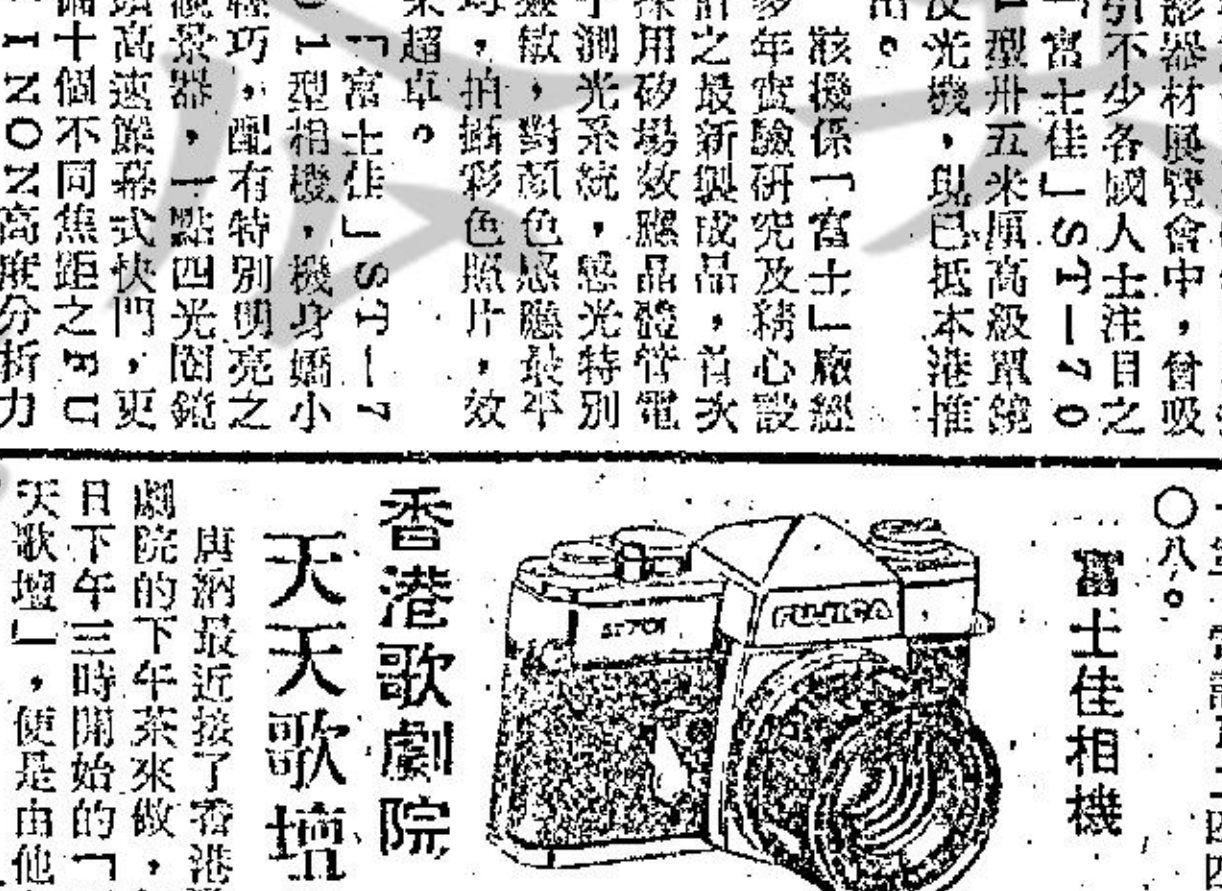 影器材展覽會中，曾吸
引不少各國人士注目之
「富士佳」ST—70
1型卅五米厘高級單鏡
反光機，現已抵本港推
出。
該機係「富士」廠經
多年實驗研究及精心設
計之最新製成品，首次
採用矽場效應晶體管電
子測光系統，感光特別
靈敏，對顏色感應最平
均，拍攝彩色照片，效
果超卓。
「富士佳」ST—7
01型相機，機身嬌小
輕巧，配有特別明亮之
觀景器，一點四光圈鏡
頭高速簾幕式快門，更
備十個不同焦距之FU
INON高度分折力
〇八。
富士佳相機
FUJICA
ST701
香港歌劇院
天天歌壇
唐納最近接了香港
劇院的下午茶來做，
日下午三時開始的「
天歌壇」，便是由他